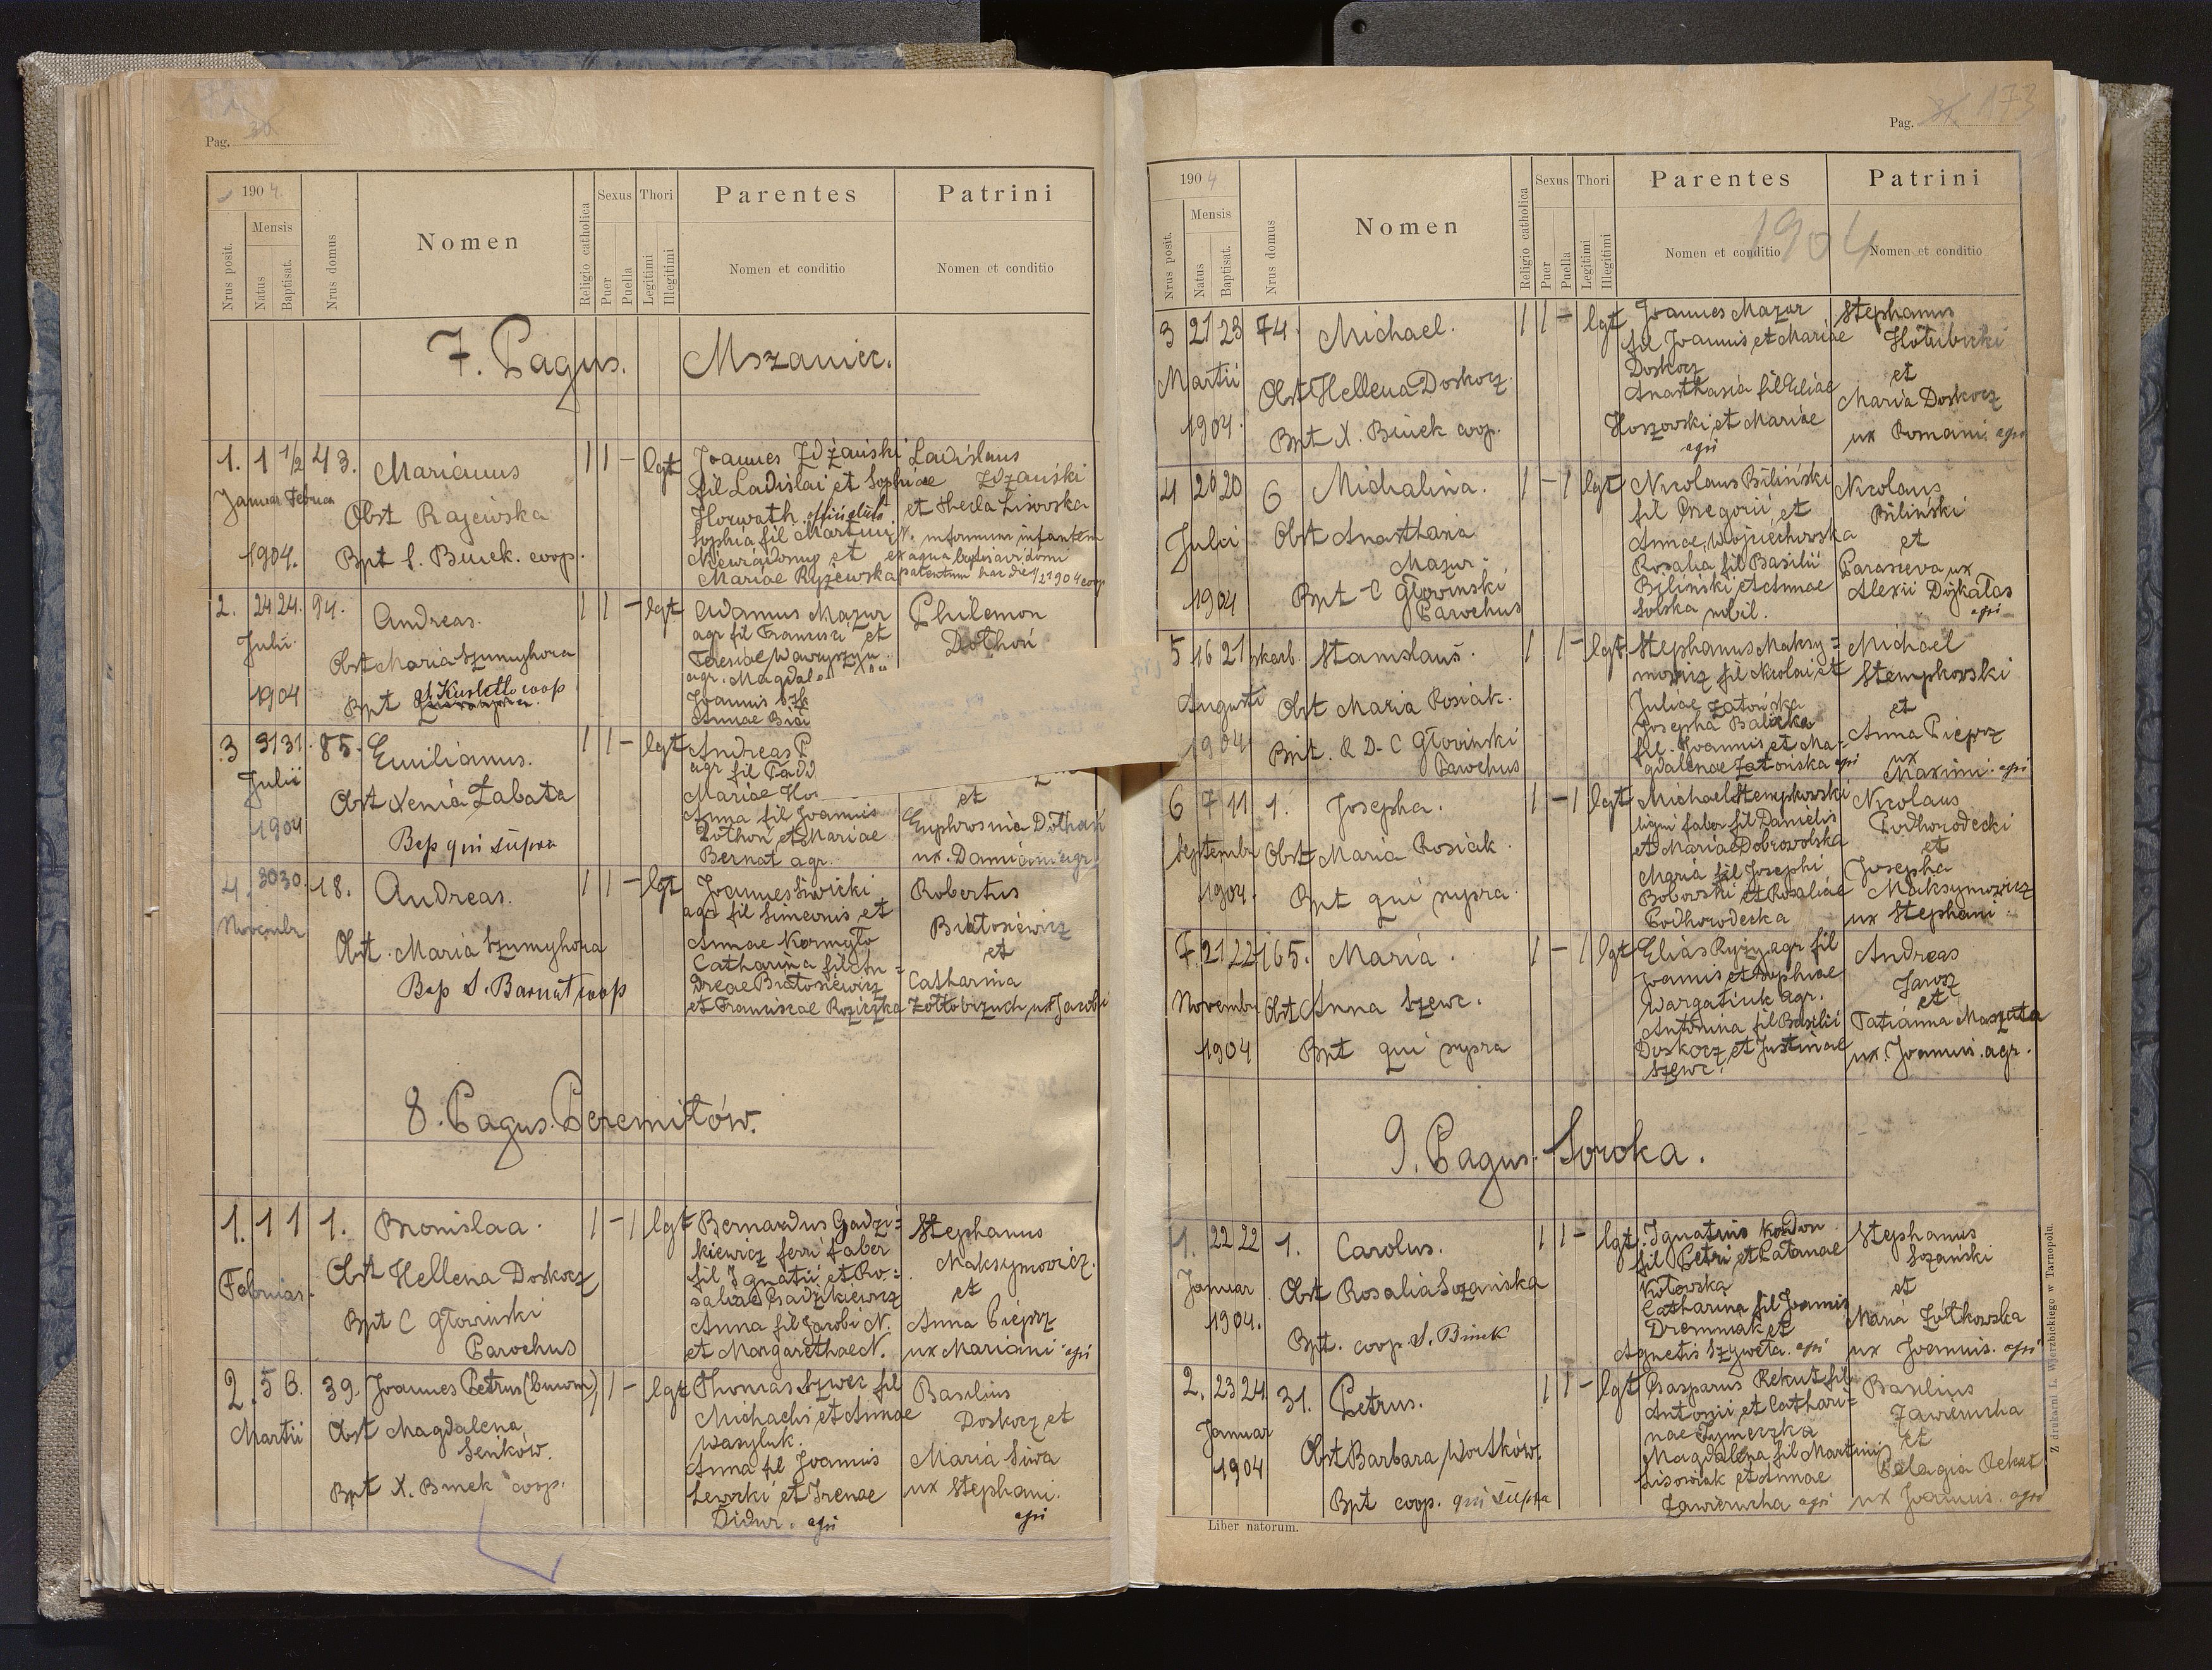 Pag. 30.
1904.
Nrus posit.
Mensis
Natus
Baptisat.
Nrus domus
Nomen
Religio catholica
Sexus
Puer
Puella
Thori
Legitimi
Illegitimi
Parentes
Nomen et conditio
Patrini
Nomen et conditio
7. Pagus. Mszaniec.
1. 1 1/2 43. Marianus 1 1 - lgt
Januar Februar
1904.
Obst Rajewska
Bpt S. Binek. coop.
Joannes Zdżański
fil Ladislai et Sophiae
Horwath
Sophia fil Martini
et
Mariae Ryżewska
Ladislaus
Zdżański
et Thecla Lisowska
N. infirmum infantem
ex aqua
2. 24 24. 94. Andreas. 1 1 - lgt
Julii
1904
Obst Maria Szumyhora
Bpt coop
Adamus Mazur
agr fil Francisci et
Teresiae Wawryszyn
agr. Magdal
Joannis
Annae
Philemon
Dothoń
3 31 31. 85. Emilianus. 1 1 - lgt
Julii
1904
Obst Xenia Żabata
Bap qui supra
Andreas P
agr fil
Mariae Ho
Anna fil Joannis
Dothoń et Mariae
Bernat agr.
et
Euphrosnia Dothań
ux. Damiani agr
4. 30 30. 18. Andreas. 1 1 - lgt
Novembr
Obst. Maria Szumyhora
Bap S. Barnat coop
Joannes Siwicki
agr fil Simeonis et
Annae Kormyło
Catharina fil An=
dreae Białosiewicz
et Franciscae Roziczka
Robertus
Białosiewicz
et
Catharina
Żółtobrzuch ux Jacobi
8. Pagus. Peremiłów.
1. 1 1 1. Bronislaa. 1 - 1 lgt
Februar.
Obst Hellena Doskocz
Bpt C Głowiński
Parochus
Bernardus Gadzi=
kiewicz ferri faber
fil Ignatii et Ro=
saliae Gadzikiewicz
Anna fil Jacobi N.
et Margarethae N.
Stephanus
Maksymowicz.
et
Anna Pieprz
ux Mariani agri
2. 5 6. 39. Joannes Petrus (binom) 1 - lgt
Martii
Obst Magdalena
Seńków.
Bpt X. Binek coop.
Thomas Szwec fil
Michaelis et Annae
Wasyluk.
Anna fil Joannis
Lewcki et Irenae
Didur. agri
Basilius
Doskocz et
Maria Siwa
ux Stephani.
agri
Pag. 31. 173
1904
Nrus posit.
Mensis
Natus
Baptisat.
Nrus domus
Nomen
Religio catholica
Sexus
Puer
Puella
Thori
Legitimi
Illegitimi
Parentes
Nomen et conditio
1904
Patrini
Nomen et conditio
3 21 23 74. Michael. 1 1 - lgt
Martii
1904.
Obst Hellena Doskocz.
Bpt X. Binek coop.
Joannes Mazur
fil Joannis et Mariae
Doskocz
Anasthasia fil Eliae
Hoszowski et Mariae
agri
Stephanus
Hołubicki
et
Maria Doskocz
ux Romani. agri
4 20 20 6 Michalina. 1 - 1 lgt
Julii
1904
Obst Anasthasia
Mazur.
Bpt C Głowinski
Parochus
Nicolaus Biliński
fil Gregorii et
Annae Wojciechowska
Rosalia fil Basilii
Biliński et Annae
Solska nobil.
Nicolaus
Biliński
et
Parasieva ux
Alexii Dijkałas
agri
5 16 21 skarb. Stanislaus. 1 1 - lgt
Augusti
1904
Obst Maria Rosiak.
Bpt. R D. C Głowinski
Parochus
Stephanus Maksy=
mowicz fil Nicolai et
Juliae Zatońska
Josepha Balicka
fil. Joannis et Ma-
gdalenae Zatońska agri
Michael
Stempkowski
et
Anna Pieprz
ux
Maximi. agri
6 7 11 1. Josepha. 1 - 1 lgt
Septembr
1904.
Obst Maria Rosiak.
Bpt qui supra
Michael Stempkowski
ligni faber fil Danielis
et Mariae Dobrowolska
Maria fil Josephi
Bobowski et Rosaliae
Podhorodecka
Nicolaus
Podhorodecki
et
Josepha
Maksymowicz
ux Stephani.
7. 21 22 165. Maria. 1 - 1 lgt
Novembr
1904
Obst Anna Szewc.
Bpt qui supra
Elias Ryży agr fil
Joannis et Sophiae
Wargatiuk agr.
Antonina fil Basilii
Doskocz et Justinae
Szewc.
Andreas
Jarosz
et
Tatianna Maszuta
ux. Joannis. agr.
9. Pagus. Soroka.
1. 22 22 1. Carolus. 1 1 - lgt.
Januar
1904.
Obst Rosalia Sozańska
Bpt. coop S. Binek
Ignatius Kordon
fil Petri et Tatianae
Kotowska
Catharina fil Joannis
Dremniak et
Agnetis Szyweta. agri
Stephanus
Sozański
et
Maria Żółkowska
ux Joannis. agri
2. 23 24 31. Petrus. 1 1 - lgt
Januar
1904
Obst Barbara Wortków.
Bpt coop. qui supra
Gasparus Rekut fil
Antonii et Cathari=
nae Tymeczka
Magdalena fil Martini
Lisowiak et Annae
Zawierucha agri
Basilius
Zawierucha
et
Pelagia Rekut
ux Joannis. agri
Liber natorum.
Z drukarni L. Wierzbickiego w Tarnopolu.